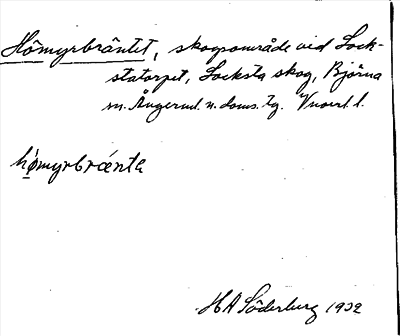 Hömyrbräntet, skogsområde vid Lock-
statorpet, Locksta skog, Björna
m. Ångerml. n. doms. tg. Vnorrl. l.
hömyrbrænta
H A Söderburg 1932